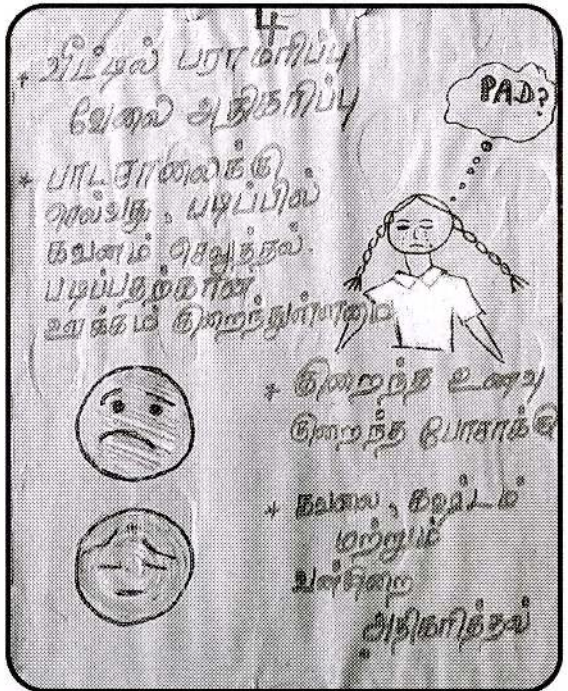 * வீட்டில் பராமரிப்பு
வேலை அதிகரிப்பு
PAD?
* பாடசாலைக்கு
செல்வது, படிப்பில்
கவனம் செலுத்தல்.
படிப்பதற்கான
ஊக்கம் குறைந்துள்ளமை
* குறைந்த உணவு
குறைந்த போசாக்கு
* கவலை, கஷ்டம்
மற்றும்
வன்முறை
அதிகரித்தல்